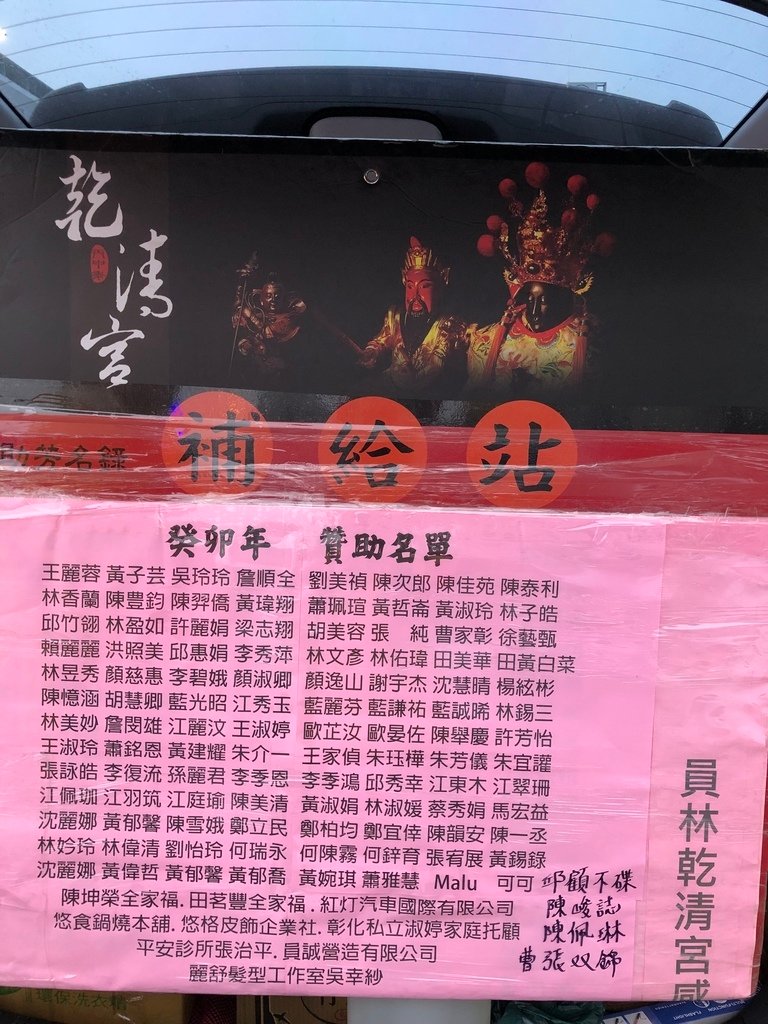 乾清宮
補給站
助芳名錄
癸卯年 贊助名單
王麗蓉 黃子芸 吳玲玲 詹順全 劉美禎 陳次郎 陳佳苑 陳泰利
林香蘭 陳豊鈞 陳羿僑 黃瑋翔 蕭珮瑄 黃哲崙 黃淑玲 林子皓
邱竹翎 林盈如 許麗娟 梁志翔 胡美容 張 純 曹家彰 徐藝甄
賴麗麗 洪照美 邱惠娟 李秀萍 林文彥 林佑瑋 田美華 田黃白菜
林昱秀 顏慈惠 李碧娥 顏淑卿 顏逸山 謝宇杰 沈慧晴 楊絃彬
陳憶涵 胡慧卿 藍光昭 江秀玉 藍麗芬 藍謙祐 藍誠晞 林錫三
林美妙 詹閔雄 江麗汶 王淑婷 歐芷汝 歐晏佐 陳舉慶 許芳怡
王淑玲 蕭銘恩 黃建耀 朱介一 王家偵 朱珏樺 朱芳儀 朱宜讙
張詠皓 李復流 孫麗君 李季恩 李季鴻 邱秀幸 江東木 江翠珊
江佩珈 江羽筑 江庭瑜 陳美清 黃淑娟 林淑媛 蔡秀娟 馬宏益
沈麗娜 黃郁馨 陳雪娥 鄭立民 鄭柏均 鄭宜倖 陳韻安 陳一丞
林姈玲 林偉清 劉怡玲 何瑞永 何陳霧 何錊育 張宥展 黃錫錄
沈麗娜 黃偉哲 黃郁馨 黃郁喬 黃婉琪 蕭雅慧 Malu 可可 邱顧不碟
陳坤榮全家福．田茗豐全家福．紅灯汽車國際有限公司 陳峻誌
悠食鍋燒本舖．悠格皮飾企業社．彰化私立淑婷家庭托顧 陳佩琳
平安診所張治平．員誠營造有限公司 曹張双錦
麗舒髮型工作室吳幸紗
員林乾清宮感
環保洗衣精